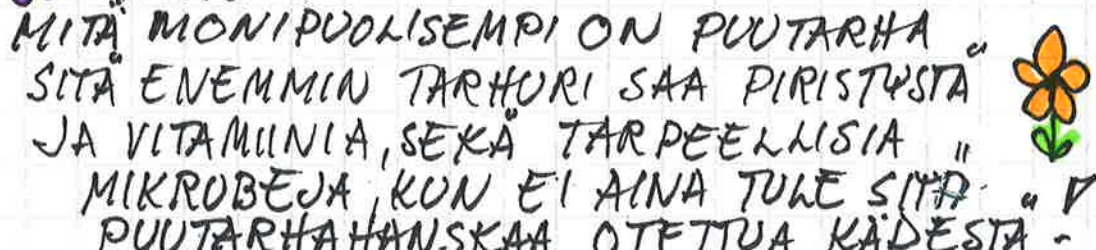 MITÄ MONIPUOLISEMPI ON PUUTARHA
SITÄ ENEMMIN TARHURI SAA PIRISTYSTÄ
JA VITAMIINIA, SEKÄ TARPEELLISIA
MIKROBEJA, KUN EI AINA TULE SITÄ
PUUTARHAHANSKAA OTETTUA KÄDESTÄ-